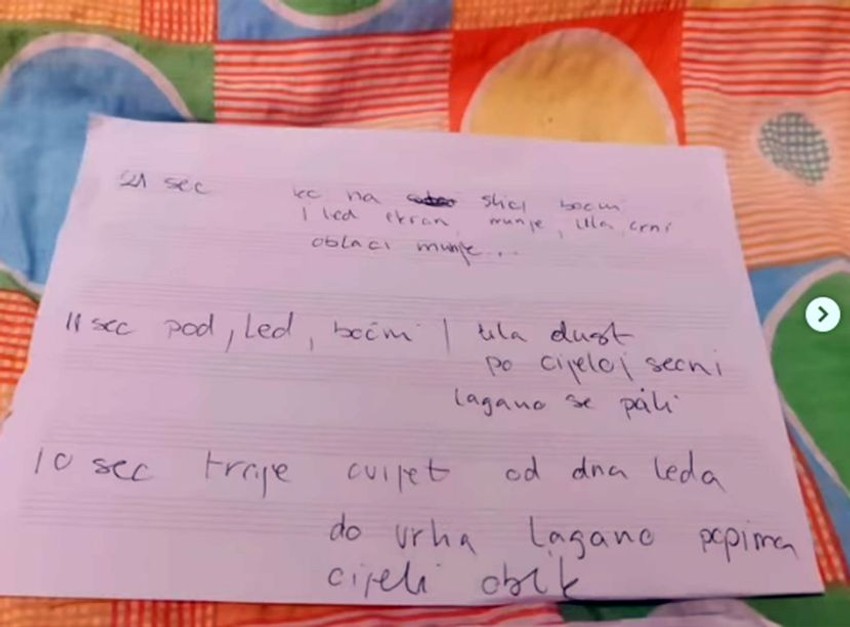 21 sec kc na slici bocni
i led ekran, munje, ula crni
oblaci munje...
11 sec pod, led, bočni i ula dust
po cijeloj secni
lagano se pali
10 sec traje cvijet od dna leda
do vrha lagano poprima
cijeli oblik